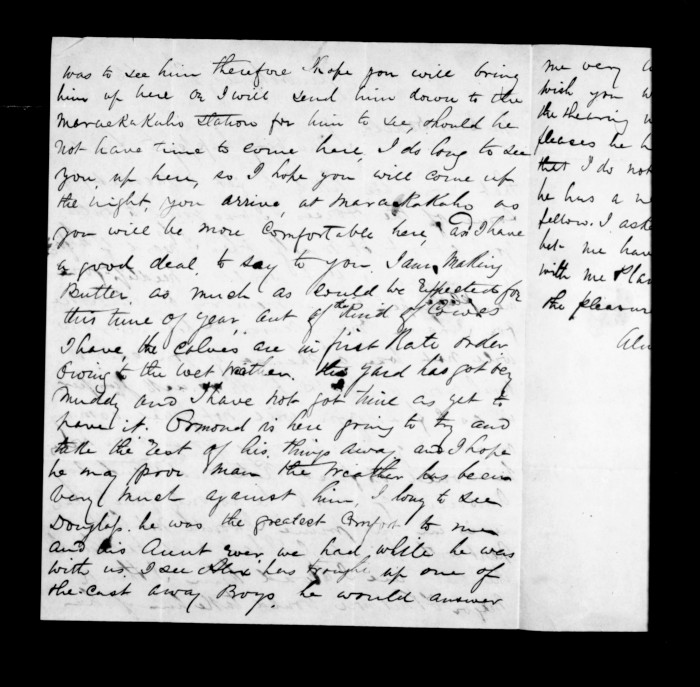 was to see him therefore I hope you will bring
him up here or I will send him down to the
Maraekakaho Station for him to see, should he
not have time to come here, I do long to see
you, up here, so I hope you will come up
the night, you arrive, at Maraekakaho as
you will be more Comfortable here, as I have
a good deal, to say to you, I am Making
Butter, as much as could be Expected for
this time of year, out of the Kind of Cows
I have, the calves are in first Rate order
Owing to the wet weather. the yard has got very
Muddy and I have not got time as yet to
pave it. Ormond is here going to try and
take the Rest of his things away and I hope
he may poor man the weather has been
very much against him, I long to see
Douglass. he was the greatest Comfort to me
and his Aunt ever we had while he was
with us. I see Alex has brought up one of
the cast away Boys, he would answer
me very
wish you
the shearing
pleases he
that I do not
he has a
fellow. I
but me have
with me
the pleasure